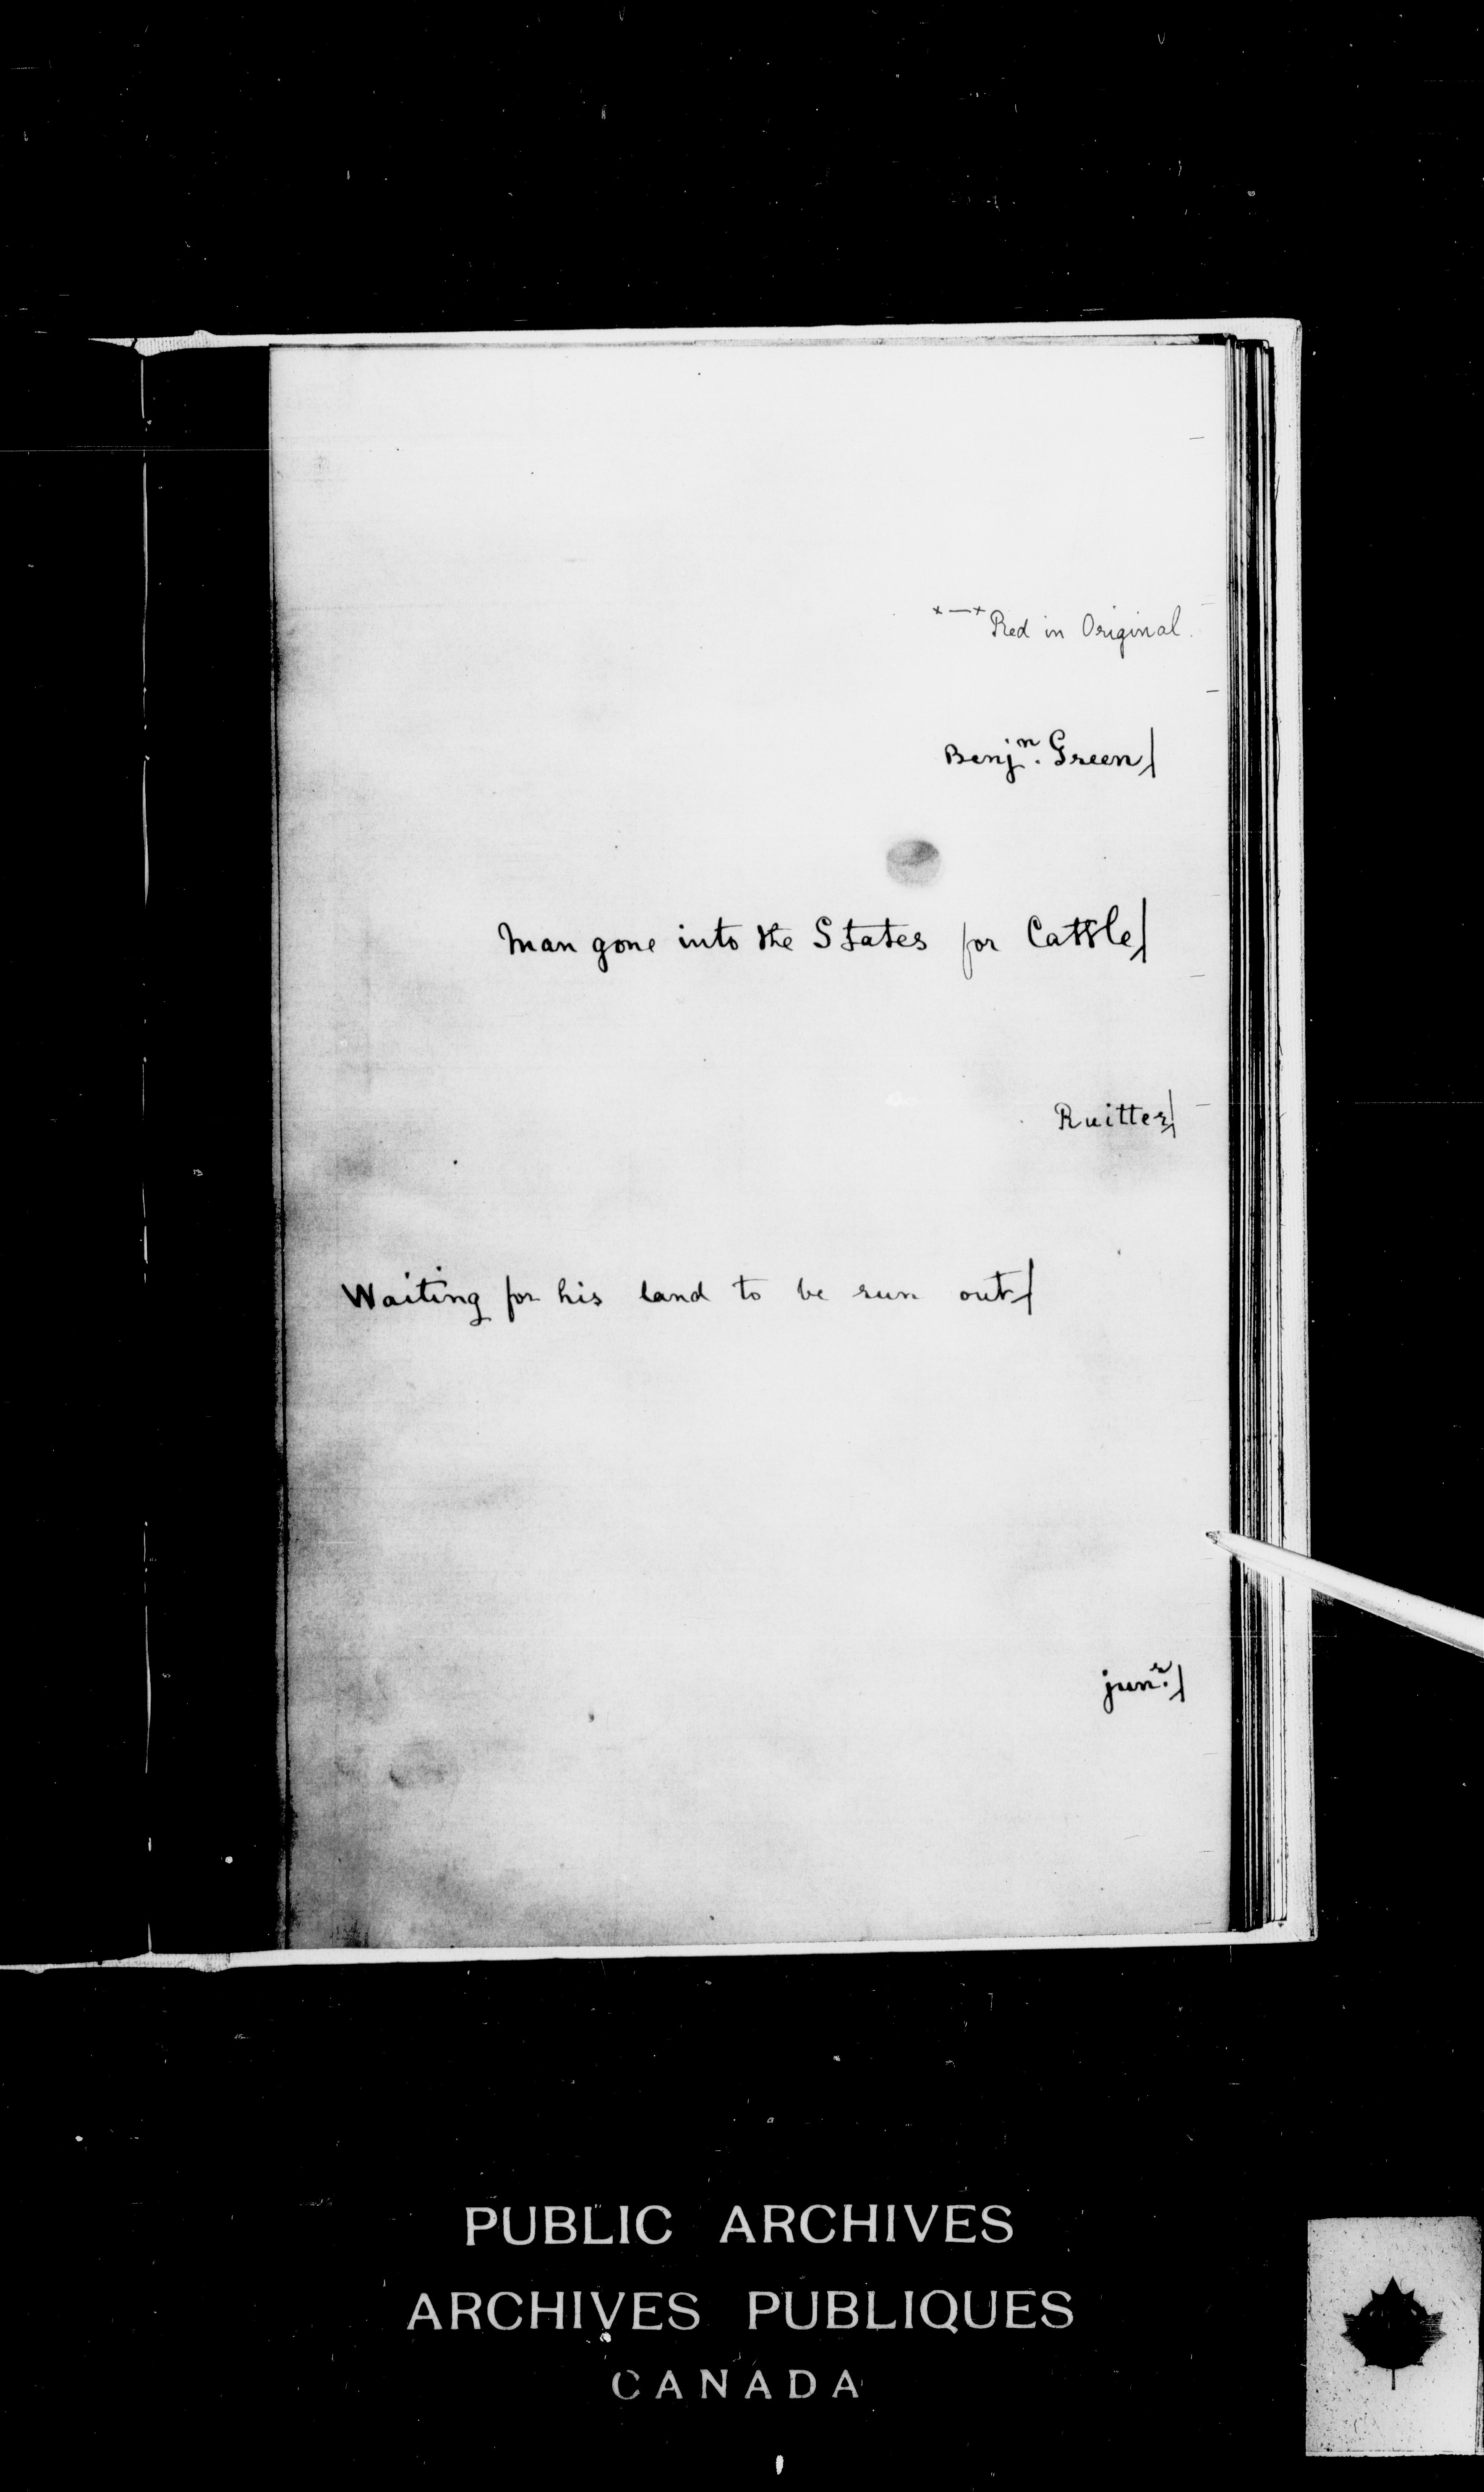 x—x Red in Original.
Benjn. Green/
Man gone into the States for Cattle/
Ruitter/
Waiting for his land to be run out/
junr./
PUBLIC ARCHIVES
ARCHIVES PUBLIQUES
CANADA